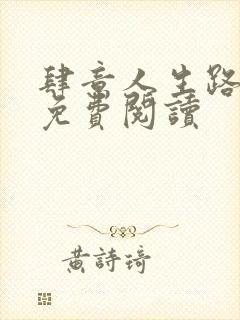 肆意人生路
免費閱讀
黃詩琦